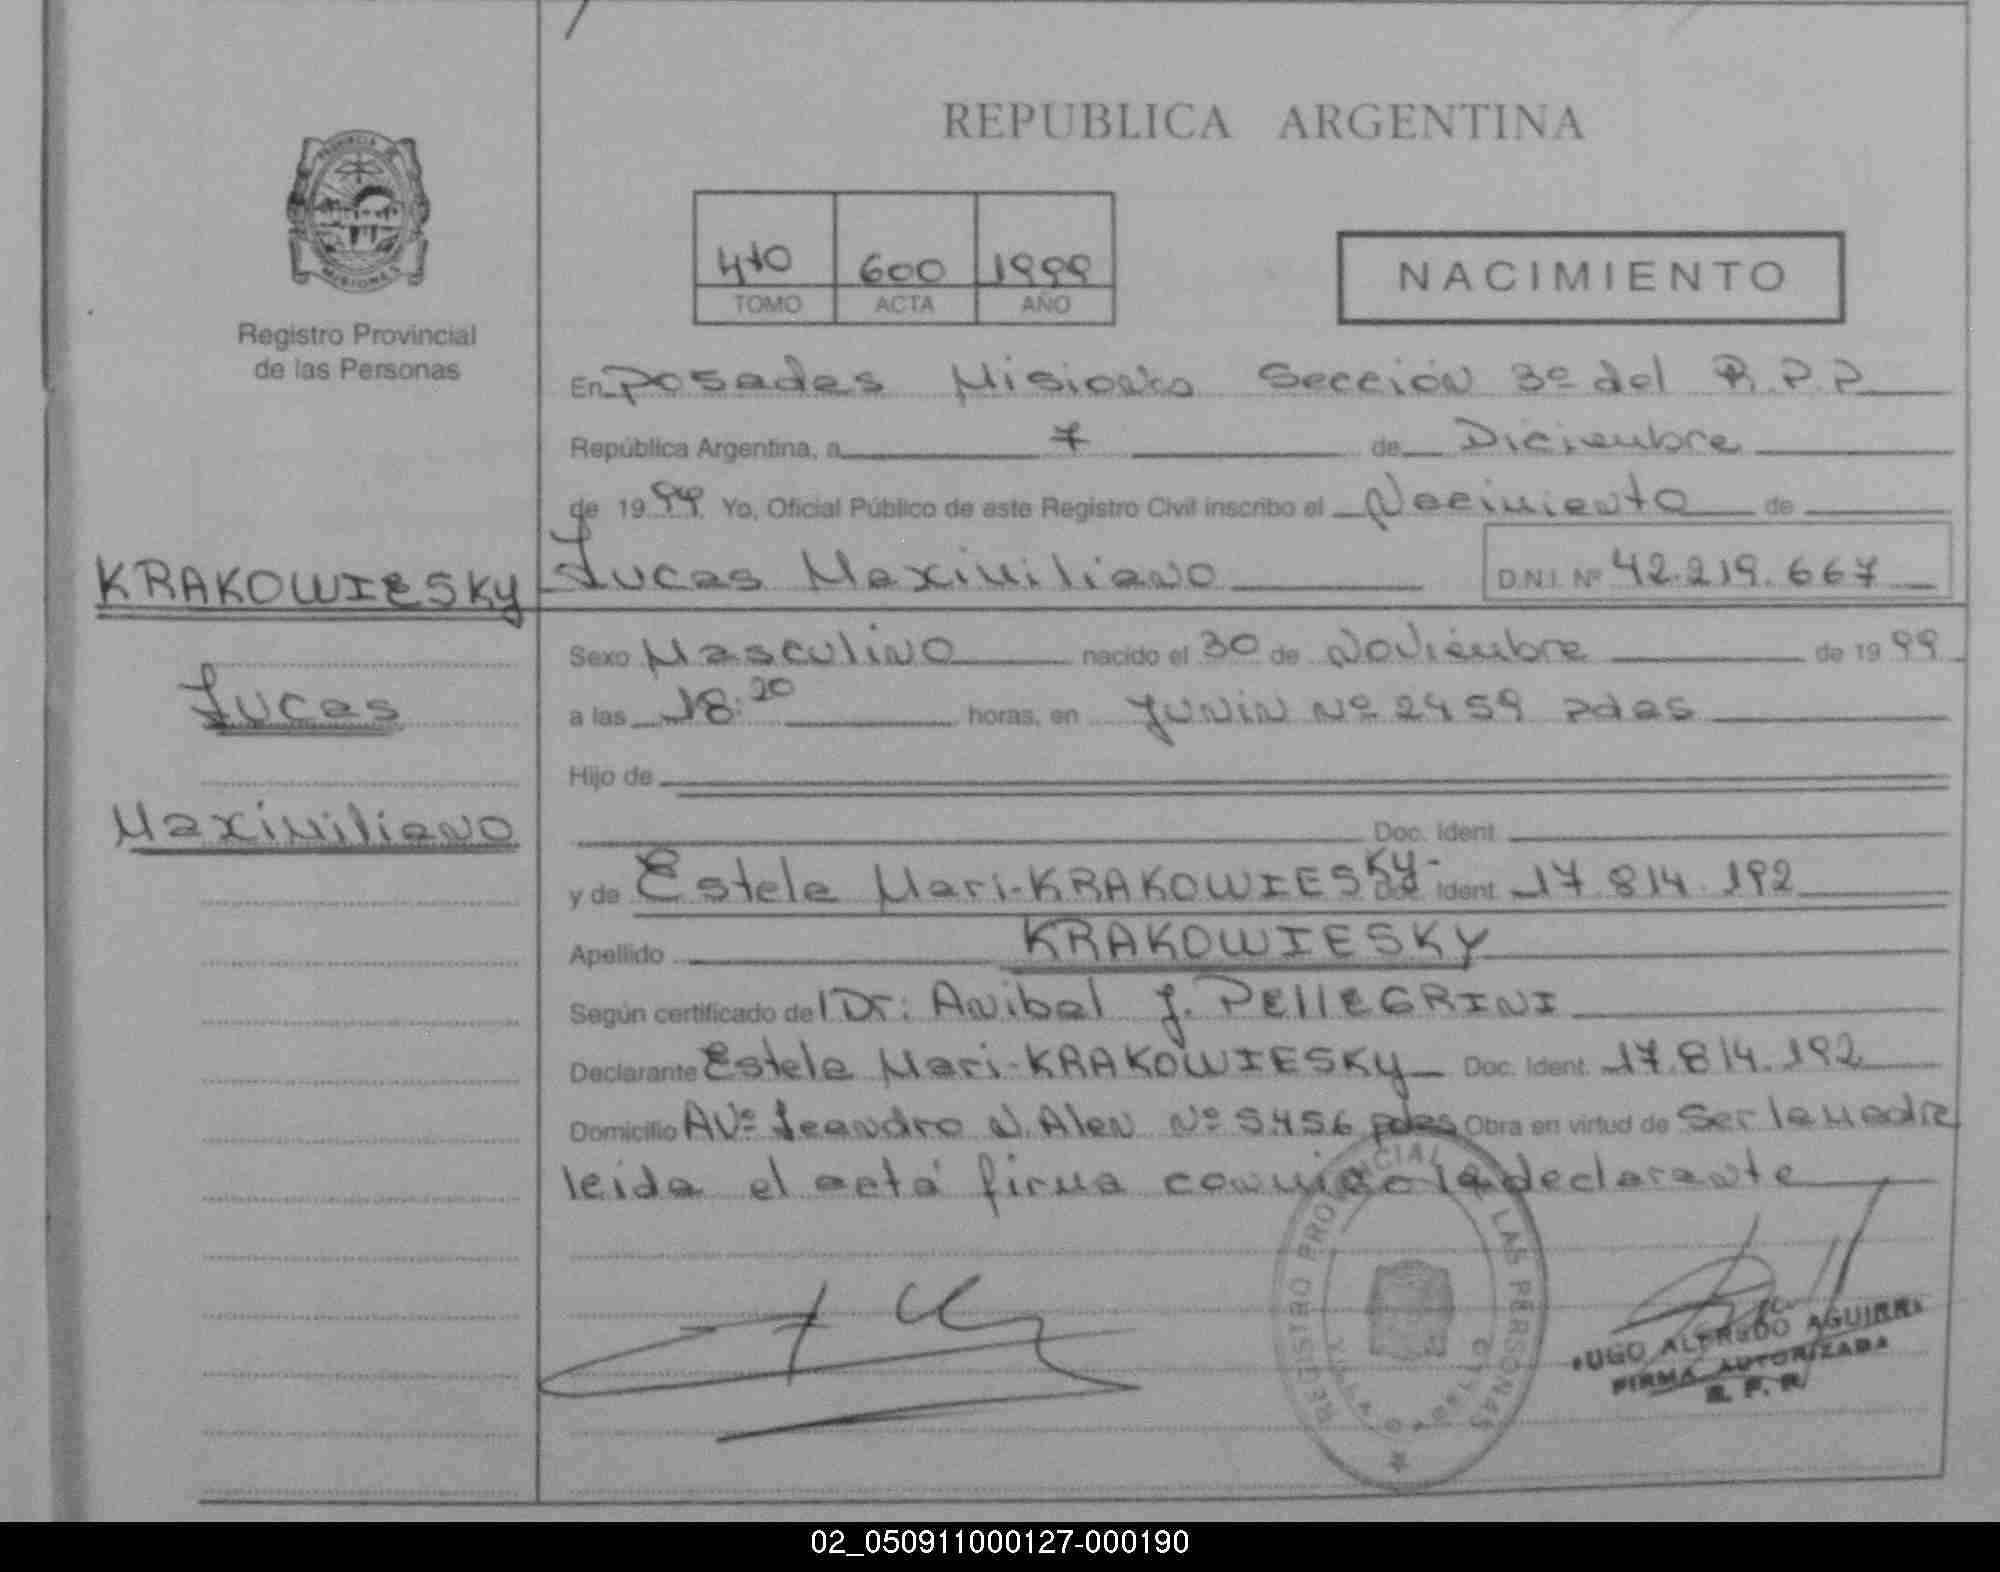 REPUBLICA ARGENTINA
PROVINCIA DE MISIONES
Registro Provincial
de las Personas
410 600 1999
TOMO ACTA AÑO
NACIMIENTO
En Posadas Misiones Sección 3º del R.P.P
República Argentina, a 7 de Diciembre
de 1999 Yo, Oficial Público de este Registro Civil inscribo el Nacimiento de
KRAKOWIESKY Lucas Maximiliano D.N.I. Nº 42.219.667
Sexo Masculino nacido el 30 de Noviembre de 1999
Lucas
a las 18:20 horas, en Junín Nº 2459 pdas
Hijo de
Maximiliano
Doc. Ident.
y de Estela Mari-KRAKOWIESKY- Doc. Ident. 17.814.192
Apellido KRAKOWIESKY
Según certificado del Dr: Anibal J. PEllEGRINI
Declarante Estela Mari-KRAKOWIESKY Doc. Ident. 17.814.192
Domicilio AVº Leandro N. Alen Nº 5456 pdas Obra en virtud de Ser la Madre
leída el acta firma conmigo la declarante
REGISTRO PROVINCIAL LAS PERSONAS
UGO ALFREDO AGUIRR
FIRMA AUTORIZADA
R. P. P.
02_050911000127-000190